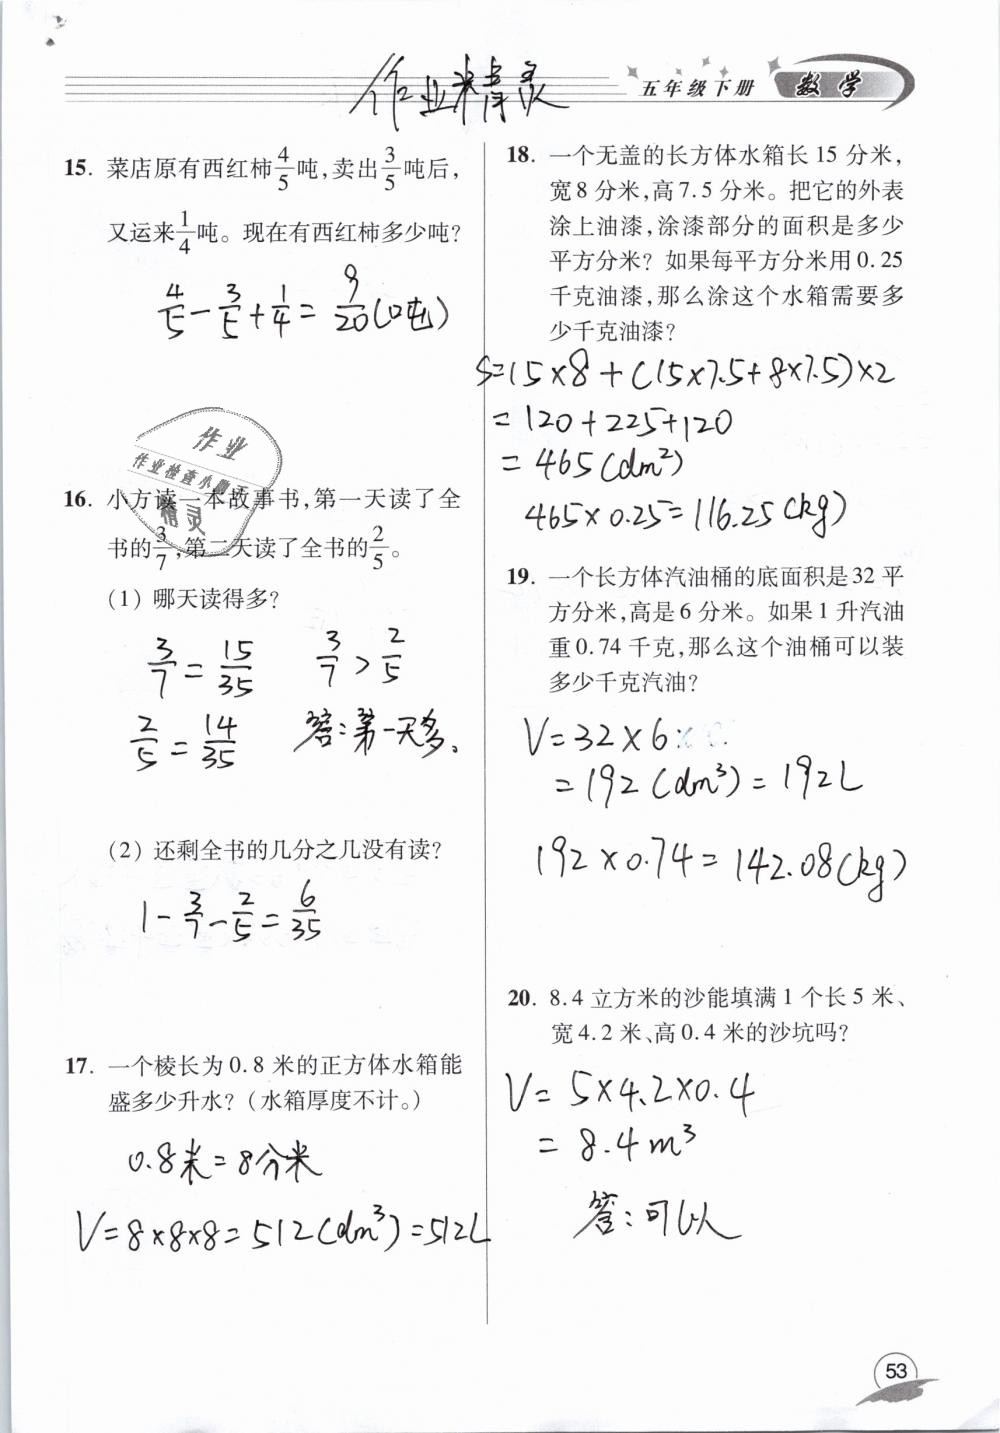 作业精灵
五年级下册 数学
15. 菜店原有西红柿4/5吨,卖出3/5吨后,
又运来1/4吨。现在有西红柿多少吨?
4/5-3/5+1/4=9/20(吨)
作业
作业检查小助手
精灵
16. 小方读一本故事书,第一天读了全
书的3/7,第二天读了全书的2/5。
(1) 哪天读得多?
3/7=15/35 3/7>2/5
2/5=14/35 答:第一天多。
(2) 还剩全书的几分之几没有读?
1-3/7-2/5=6/35
17. 一个棱长为0.8米的正方体水箱能
盛多少升水?(水箱厚度不计。)
0.8米=8分米
V=8×8×8=512(dm³)=512L
18. 一个无盖的长方体水箱长15分米,
宽8分米,高7.5分米。把它的外表
涂上油漆,涂漆部分的面积是多少
平方分米?如果每平方分米用0.25
千克油漆,那么涂这个水箱需要多
少千克油漆?
S=15×8+(15×7.5+8×7.5)×2
=120+225+120
=465(dm²)
465×0.25=116.25(kg)
19. 一个长方体汽油桶的底面积是32平
方分米,高是6分米。如果1升汽油
重0.74千克,那么这个油桶可以装
多少千克汽油?
V=32×6
=192(dm³)=192L
192×0.74=142.08(kg)
20. 8.4立方米的沙能填满1个长5米、
宽4.2米、高0.4米的沙坑吗?
V=5×4.2×0.4
=8.4m³
答:可以
53